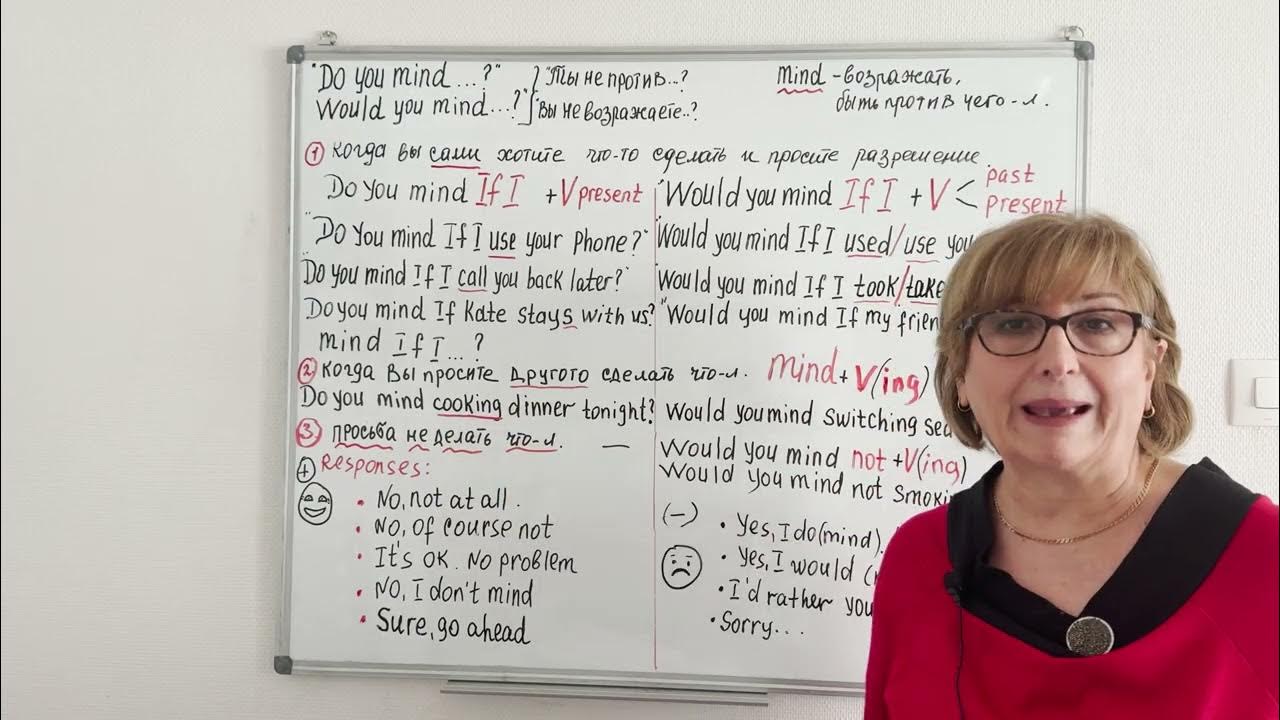 "Do you mind ...?" } "Ты не против...?
Would you mind ...?" } "Вы не возражаете..?
mind - возражать,
быть против чего-л.
① Когда вы сами хотите что-то сделать и просите разрешение.
Do you mind If I + V present
"Would you mind If I + V < past
present
"Do you mind If I use your phone?"
Would you mind If I used/use
Do you mind If I call you back later?
Would you mind If I took/take
Do you mind If Kate stays with us?
"Would you mind If my
mind If I ... ?
② Когда Вы просите другого сделать что-л. mind + V(ing)
Do you mind cooking dinner tonight?
Would you mind switching
③ Просьба не делать что-л. —
Would you mind not + V(ing)
Would you mind not
(+) Responses:
• No, not at all.
• No, of course not
• It's ok. No problem
• No, I don't mind
• Sure, go ahead
(-)
• Yes, I do (mind).
• Yes, I would
• I'd rather you
• Sorry...